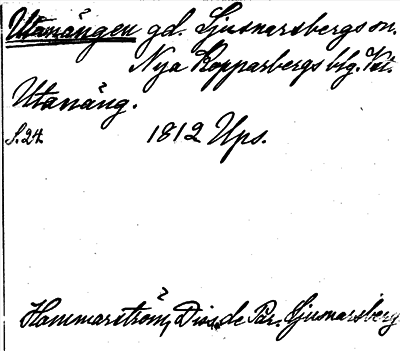 Utanängen gd. Ljusnarsbergs sn.
Nya Kopparbergs blg. Vstm.
Utanäng.
S. 24 1812 Ups.
Hammarström, Diss. de Par. Ljusnarsberg